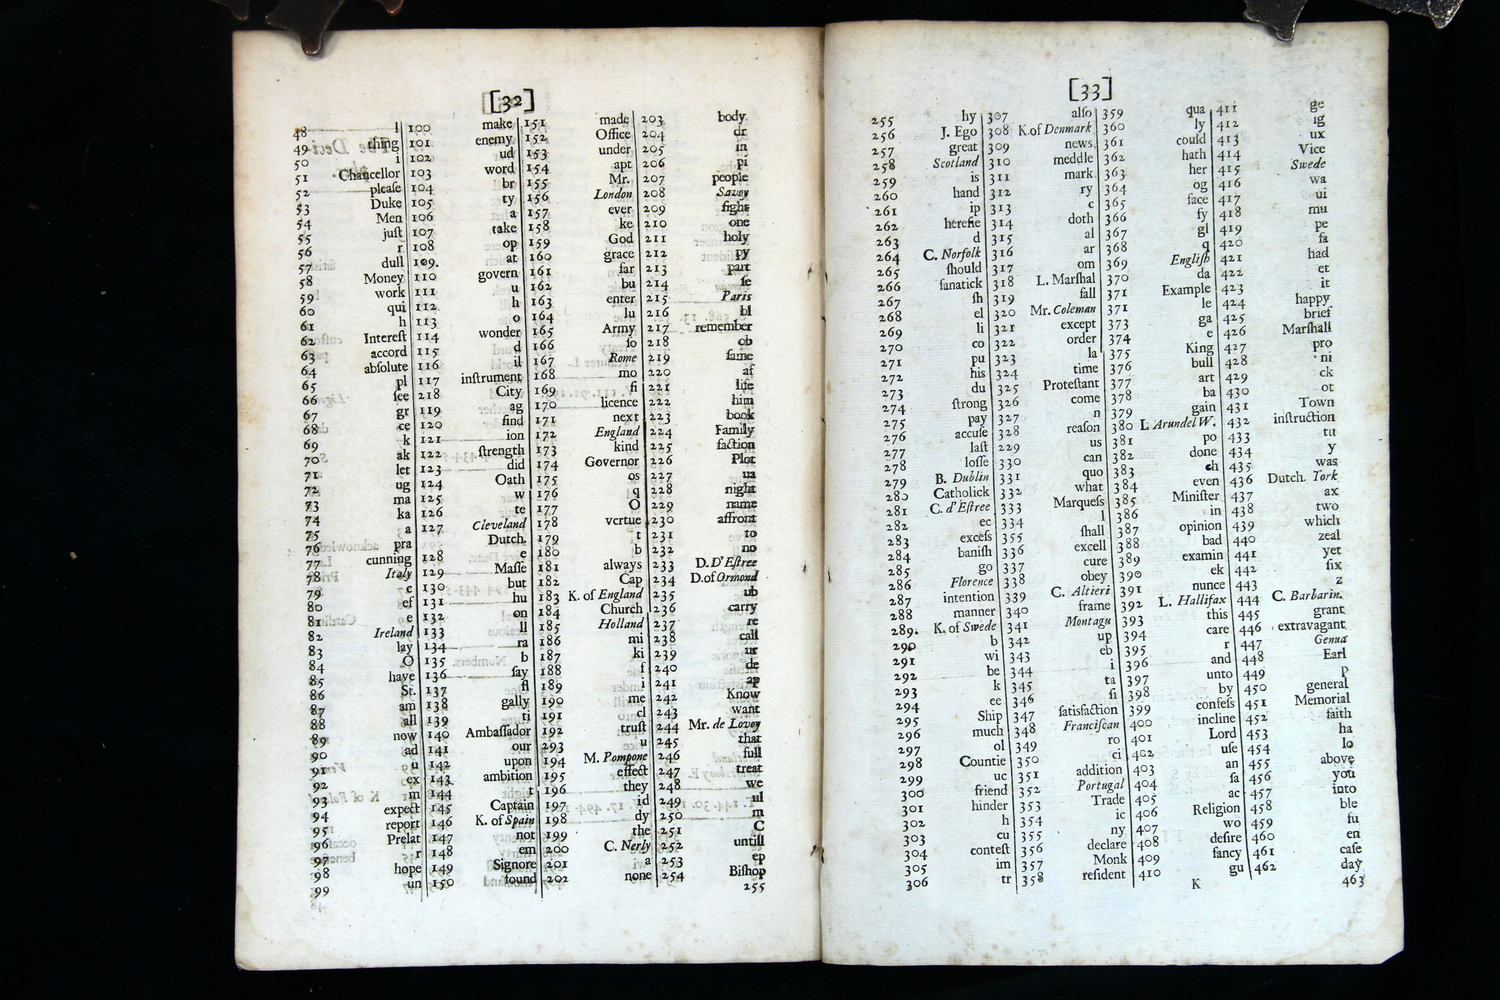 [32]
48 l
49 thing
50 i
51 Chancellor
52 pleaſe
53 Duke
54 Men
55 juſt
56 r
57 dull
58 Money
59 work
60 qui
61 h
62 Intereſt
63 accord
64 abſolute
65 pl
66 ſce
67 gr
68 ce
69 k
70 ak
71 let
72 ug
73 ma
74 ka
75 a
76 pra
77 cunning
78 Italy
79 c
80 ef
81 e
82 Ireland
83 lay
84 O
85 have
86 St.
87 am
88 all
89 now
90 ad
91 u
92 ex
93 m
94 expect
95 report
96 Prelat
97 r
98 hope
99 un
100 make
101 enemy
102 ud
103 word
104 br
105 ty
106 a
107 take
108 op
109. at
110 govern
111 u
112 h
113 o
114 wonder
115 d
116 il
117 inſtrument
218 City
119 ag
120 find
121 ion
122 ſtrength
123 did
124 Oath
125 w
126 te
127 Cleveland
Dutch.
128 e
129 Maſſe
130 but
131 hu
132 on
133 ll
134 ra
135 b
136 ſay
137 fl
138 gally
139 ti
140 Ambaſſador
141 our
142 upon
143 ambition
144 t
145 Captain
146 K. of Spain
147 not
148 em
149 Signore
150 found
151 made
152 Office
153 under
154 apt
155 Mr.
156 London
157 ever
158 ke
159 God
160 grace
161 far
162 bu
163 enter
164 lu
165 Army
166 ſo
167 Rome
168 mo
169 fi
170 licence
171 next
172 England
173 kind
174 Governor
175 os
176 q
177 O
178 vertue
179 t
180 b
181 always
182 Cap
183 K. of England
184 Church
185 Holland
186 mi
187 ki
188 f
189 i
190 me
191 cl
192 truſt
293 u
194 M. Pompone
195 effect
196 they
197 id
198 dy
199 the
200 C. Nerly
201 a
202 none
203 body
204 dr
205 in
206 pi
207 people
208 Savoy
209 fight
210 one
211 holy
212 py
213 part
214 ſe
215 Paris
216 bl
217 remember
218 ob
219 ſame
220 af
221 life
222 him
223 book
224 Family
225 faction
226 Plot
227 ua
228 night
229 name
230 affront
231 to
232 no
233 D. D'Eſtree
234 D.of Ormond
235 ub
236 carry
237 re
238 call
239 ur
240 de
241 ap
242 Know
243 want
244 Mr. de Lovoy
245 that
246 full
247 treat
248 we
249 ul
250 m
251 C
252 untill
253 ep
254 Biſhop
255
[33]
255 hy
256 J. Ego
257 great
258 Scotland
259 is
260 hand
261 ip
262 hereſie
263 d
264 C. Norfolk
265 ſhould
266 fanatick
267 ſh
268 el
269 li
270 co
271 pu
272 his
273 du
274 ſtrong
275 pay
276 accuſe
277 laſt
278 loſſe
279 B. Dublin
280 Catholick
281 C. d'Eſtree
282 ec
283 exceſs
284 baniſh
285 go
286 Florence
287 intention
288 manner
289. K. of Swede
290 b
291 wi
292 be
293 k
294 ee
295 Ship
296 much
297 ol
298 Countie
299 uc
300 friend
301 hinder
302 h
303 cu
304 conteſt
305 im
306 tr
307 alſo
308 K.of Denmark
309 news
310 meddle
311 mark
312 ry
313 c
314 doth
315 al
316 ar
317 om
318 L. Marſhal
319 fall
320 Mr. Coleman
321 except
322 order
323 la
324 time
325 Proteſtant
326 come
327 n
328 reaſon
329 us
330 can
331 quo
332 what
333 Marqueſs
334 l
335 ſhall
336 excell
337 cure
338 obey
339 C. Altieri
340 frame
341 Montagu
342 up
343 eb
344 i
345 ta
346 ſi
347 ſatisfaction
348 Franciſcan
349 ro
350 ci
351 addition
352 Portugal
353 Trade
354 ic
355 ny
356 declare
357 Monk
358 reſident
359 qua
360 ly
361 could
362 hath
363 her
364 og
365 face
366 fy
367 gl
368 q
369 Engliſh
370 da
371 Example
371 le
373 ga
374 e
375 King
376 bull
377 art
378 ba
379 gain
380 L Arundel W.
381 po
382 done
383 ch
384 even
385 Miniſter
386 in
387 opinion
388 bad
389 examin
390 ek
391 nunce
392 L. Hallifax
393 this
394 care
395 r
396 and
397 unto
398 by
399 confeſs
400 incline
401 Lord
402 uſe
403 an
404 ſa
405 ac
406 Religion
407 wo
408 deſire
409 fancy
410 gu
411 ge
412 ig
413 ux
414 Vice
415 Swede
416 wa
417 ui
418 mu
419 pe
420 fa
421 had
422 et
423 it
424 happy
425 brief
426 Marſhall
427 pro
428 ni
429 ck
430 ot
431 Town
432 inſtruction
433 tu
434 y
435 was
436 Dutch. York
437 ax
438 two
439 which
440 zeal
441 yet
442 ſix
443 z
444 C. Barbarin.
445 grant
446 extravagant
447 Genua
448 Earl
449 p
450 general
451 Memorial
452 faith
453 ha
454 lo
455 above
456 you
457 into
458 ble
459 fu
460 en
461 caſe
462 day
K
463